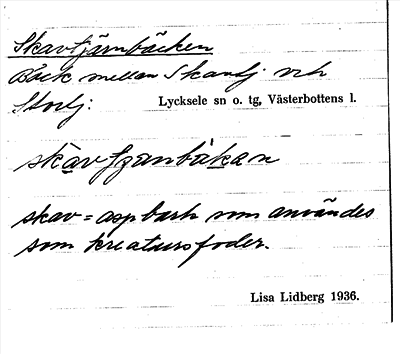 Skavtjärnbäcken
Bäck mellan Skavtj. och
Stortj:
Lycksele sn o. tg, Västerbottens l.
skav = aspbark som användes
som kreatursfoder.
Lisa Lidberg 1936.